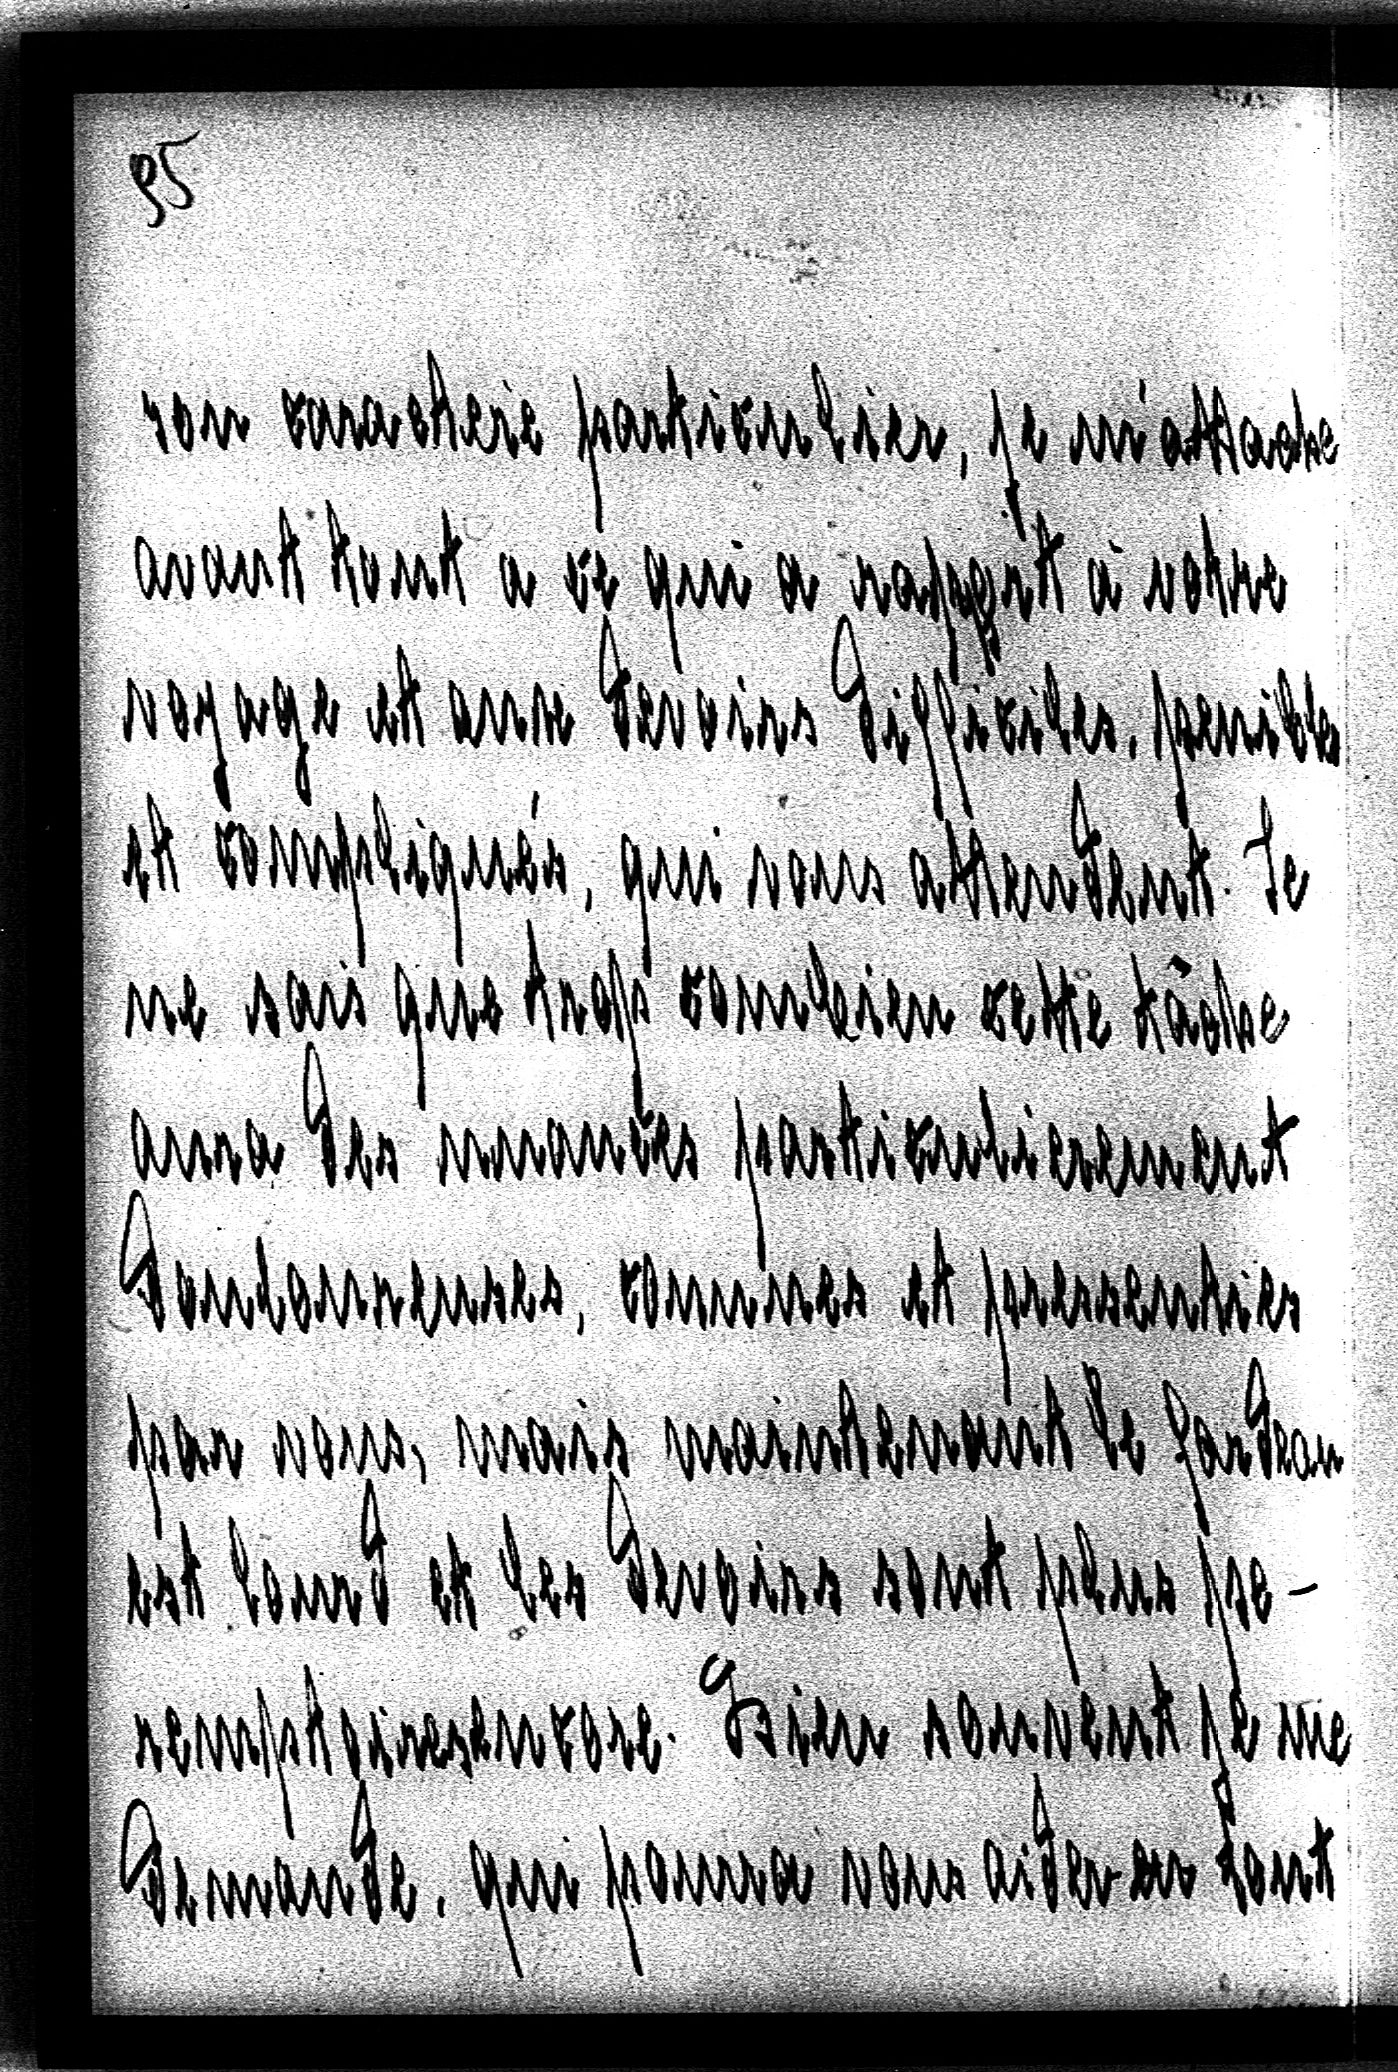 95
son caractère particulier, je m'attache
avant tout a ce qui a rapport à votre
voyage et aux devoirs difficiles, penibles
et compliqués, qui vous attendent. Je
ne sais que trop combien cette tâche
aura des nuances particulierement
douloureuses, connues et pressenties
par vous, mais maintenant le fardeau
est lourd et les devoirs sont plus pe-
remptoires encore. Bien souvent je me
demande, qui pourra vous aider en tout